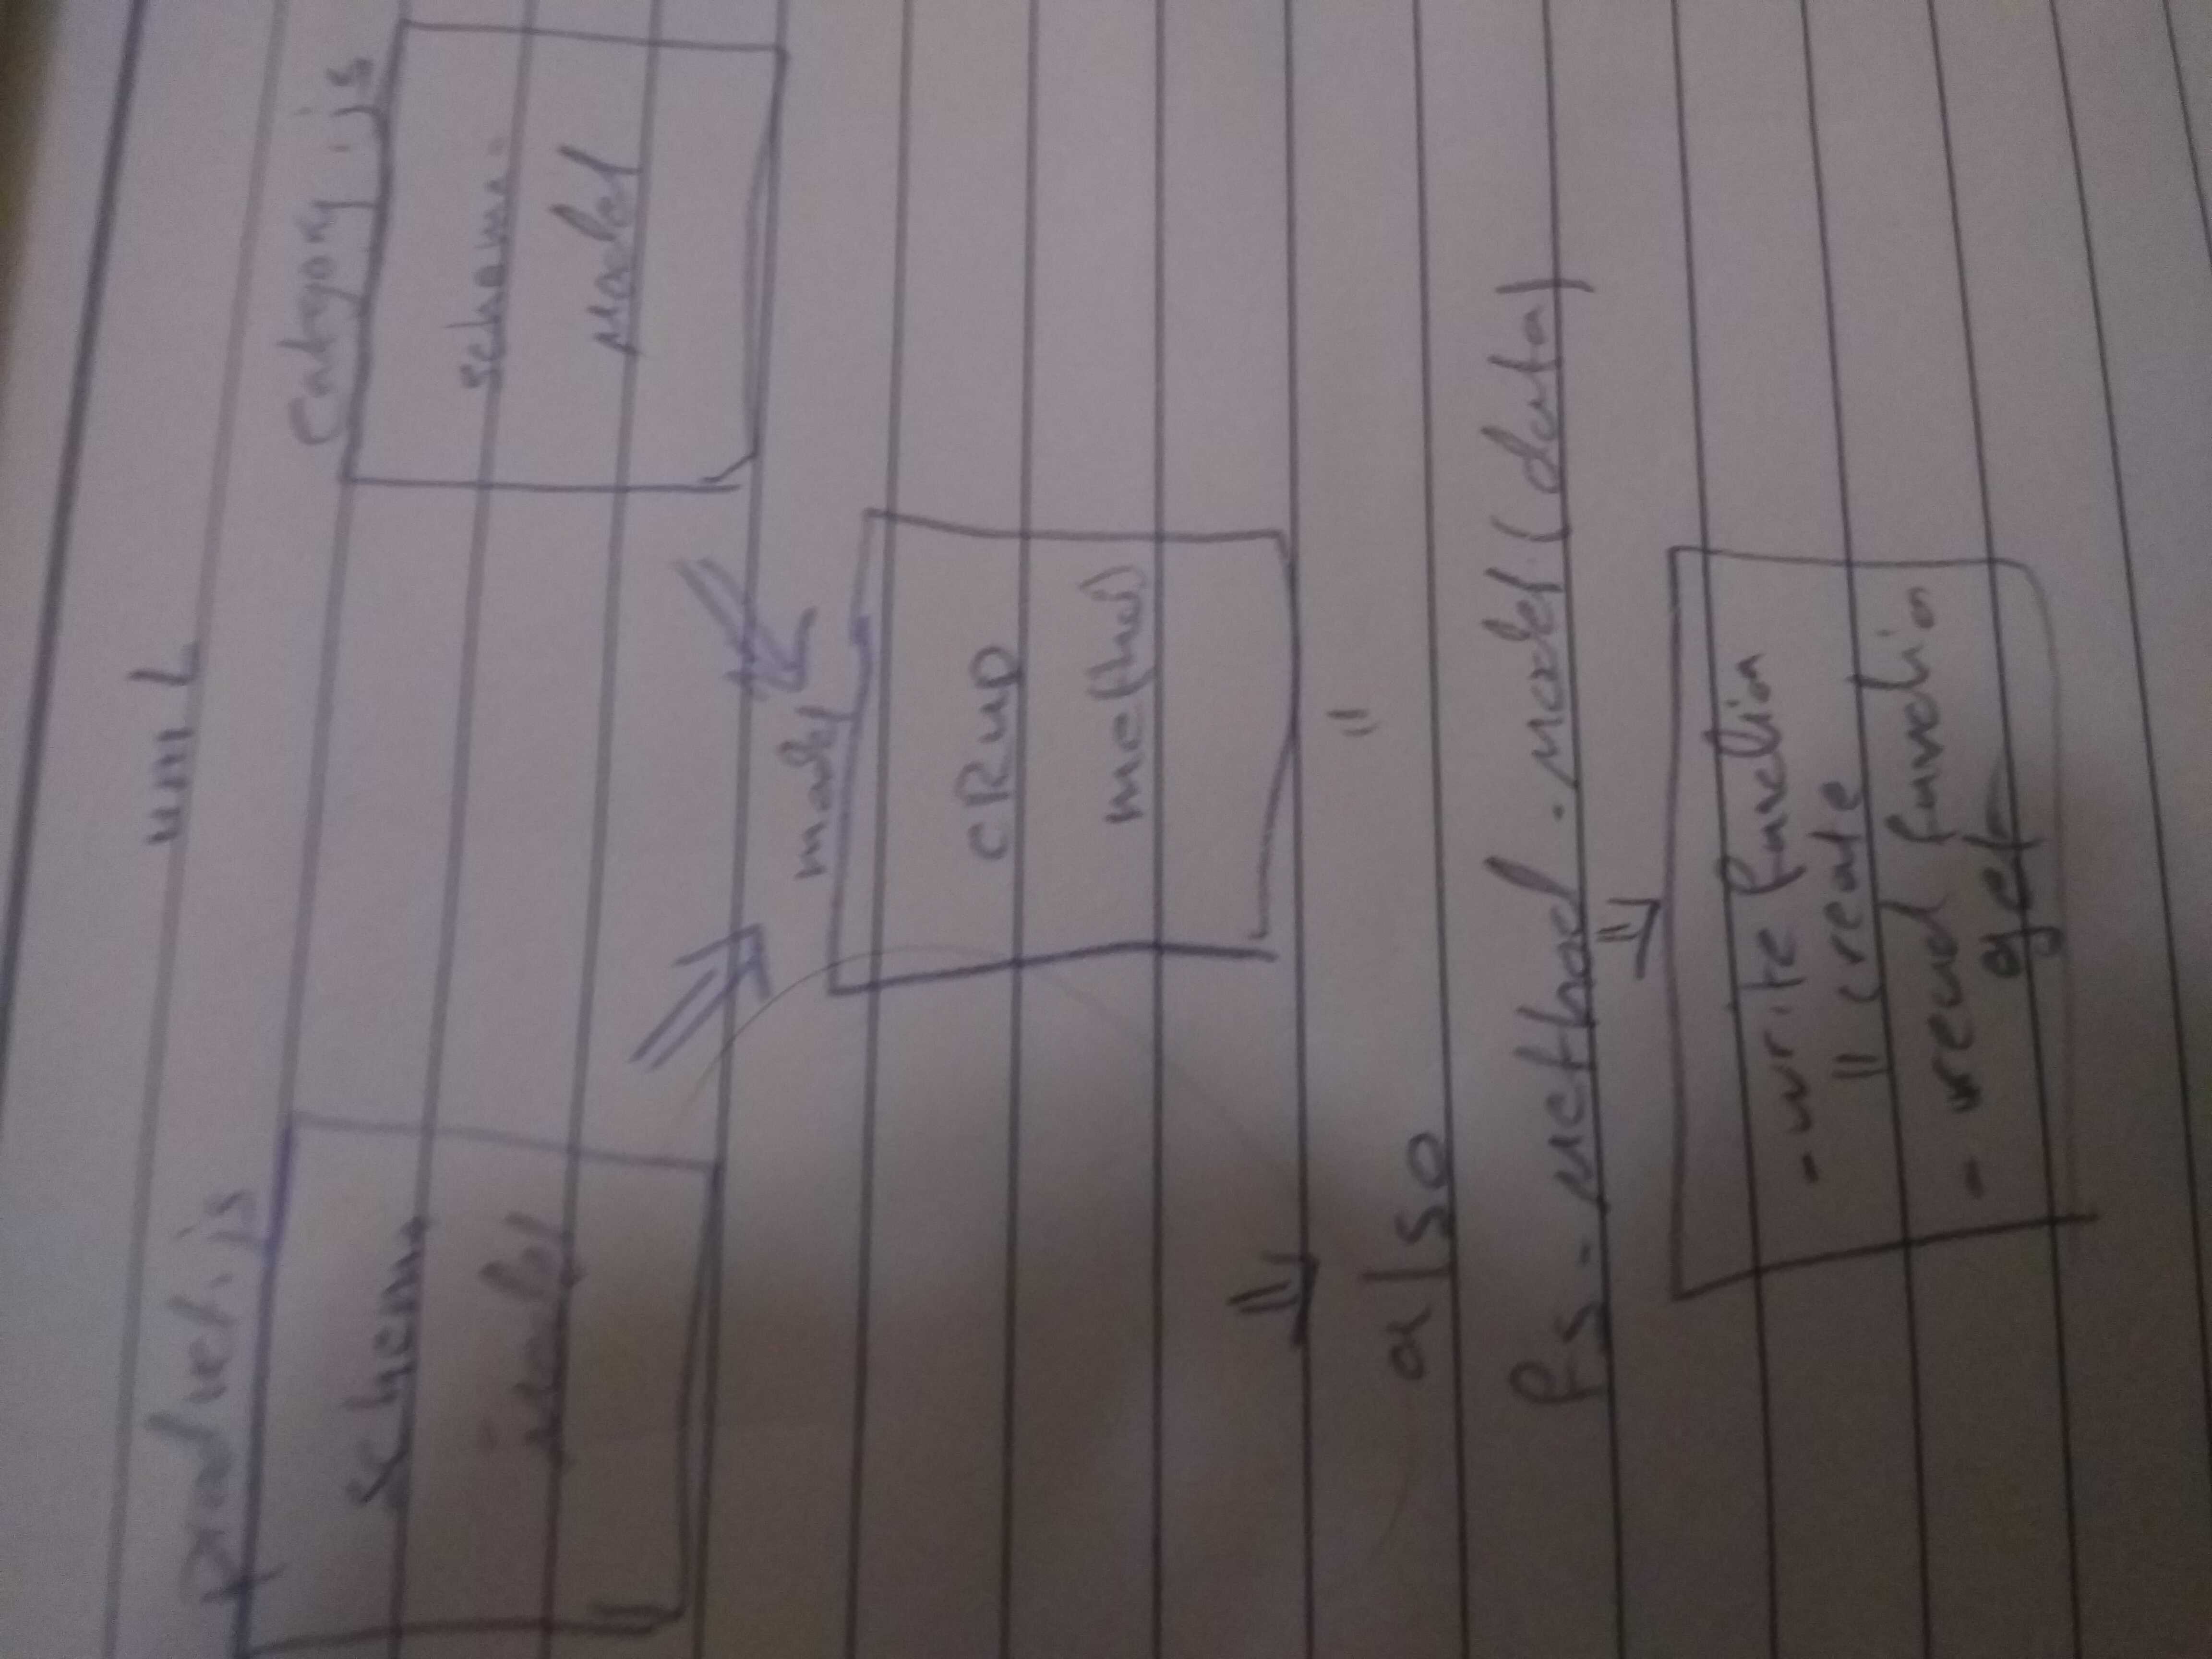 UML
product.js
Category.js
Schema
Model
schama
Model
model
CRUD
method
"
also
fs-method.model(data)
- write function
" create
- read function
get